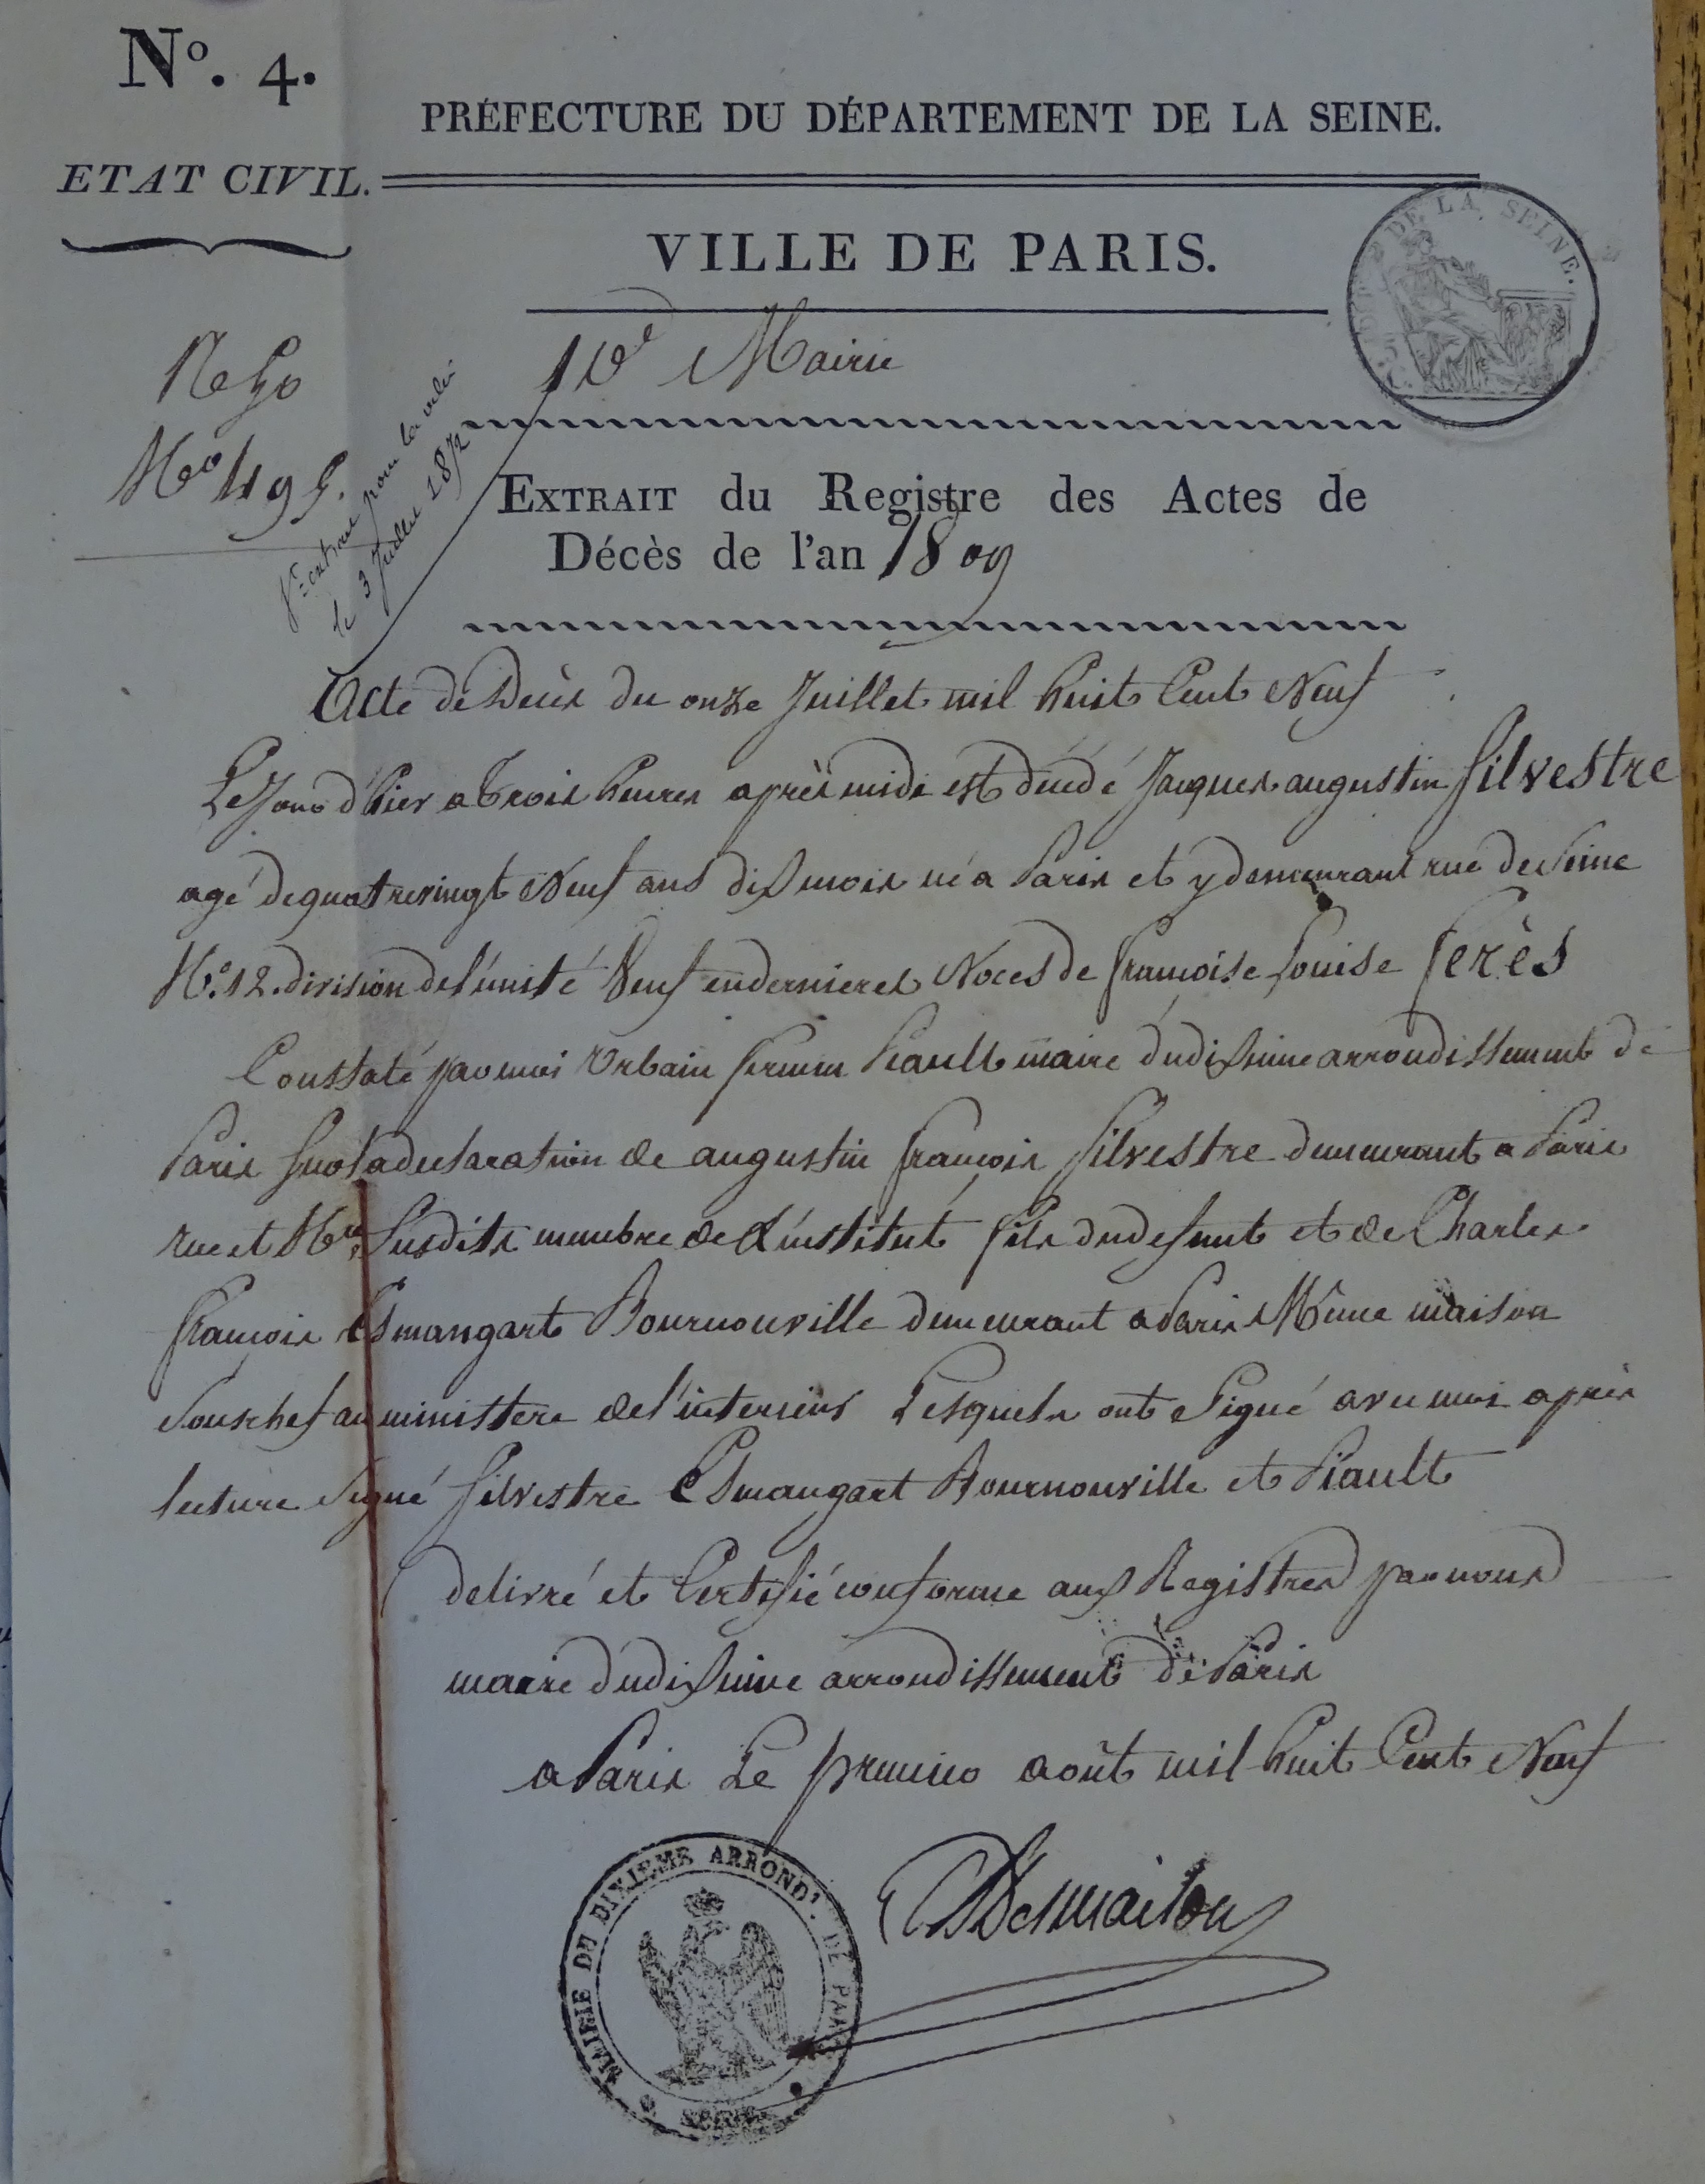 N.º 4.
PRÉFECTURE DU DÉPARTEMENT DE LA SEINE.
ETAT CIVIL.
DE LA SEINE.
VILLE DE PARIS.
10e Mairie
Nº 495.
pour la
le 3 Juillet 1872
EXTRAIT du Registre des Actes de
Décès de l'an 1809
Acte de Décès du onze Juillet mil huit Cent Neuf
Le Jour d'hier a trois heures après midi est décédé Jacques augustin Silvestre
agé de quatre vingt Neuf ans dix mois né a Paris et y demeurant rue de Seine
Nº. 12. division de l'unité Veuf en dernieres Noces de françoise Louise ferès
Constaté par moi Urbain firmin Piault maire du dixieme arrondissement de
Paris sur la declaration de augustin françois Silvestre demeurant a Paris
rue et Nro. Susdits membre de L'institut fils du defunt et de Charles
françois Esmangart Bournonville demeurant a Paris Même maison
Sous chef au ministere de l'interieur Lesquels ont Signé avec moi après
lecture Signé Silvestre Esmangart Bournonville et Piault
delivré et Certifié conforme aux Registres par nous
maire du dixieme arrondissement de Paris
a Paris Le premier août mil huit Cent Neuf
MAIRIE DU DIXIEME ARRONDT. DE PARIS
SEINE